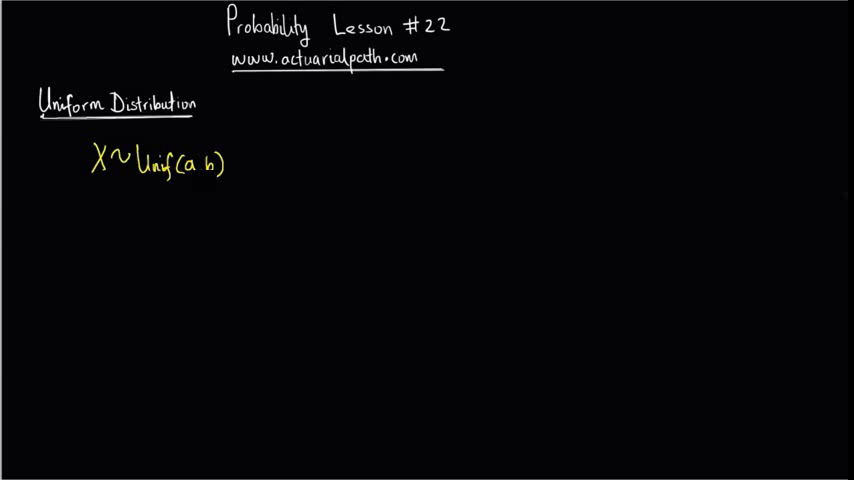 Probability Lesson #22
www.actuarialpath.com
Uniform Distribution
X~Unif(a b)